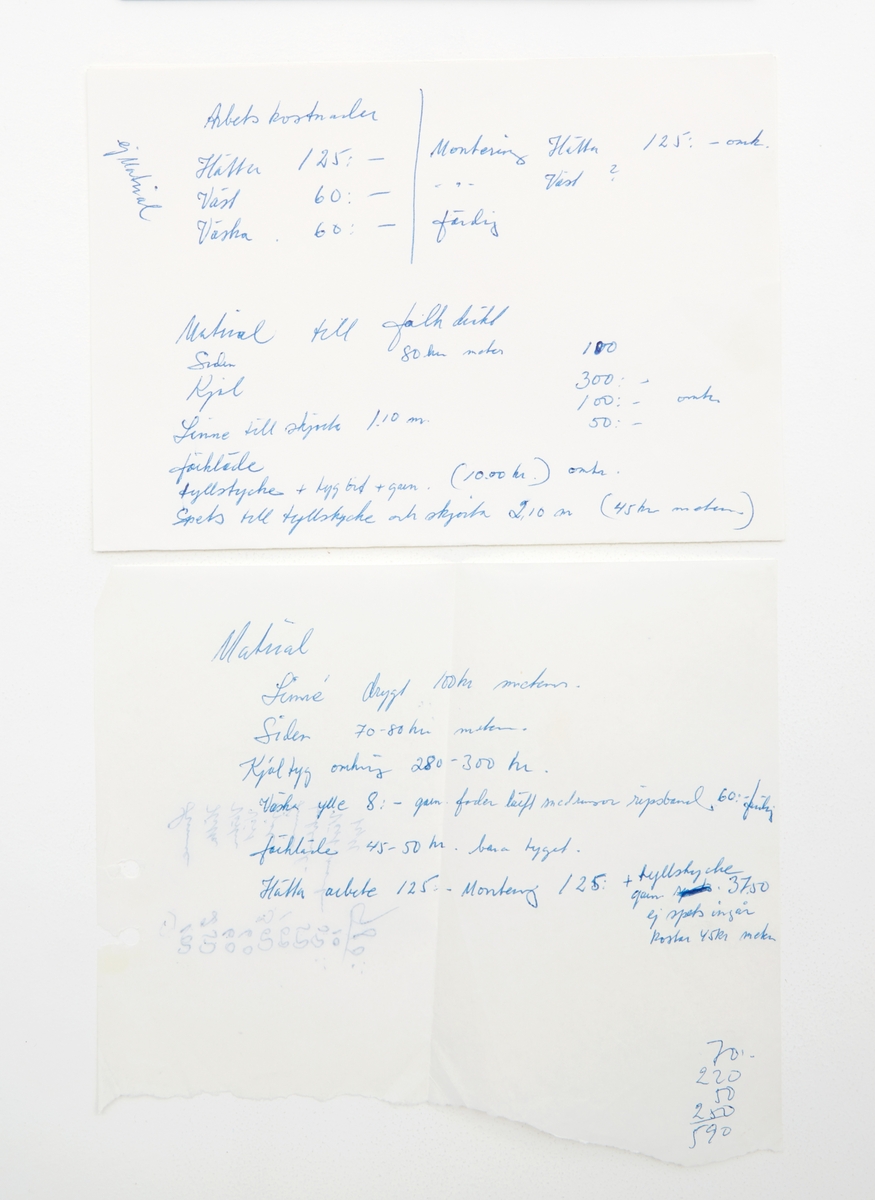 Arbetskostnader
ej Material
Hätta 125:-
Väst 60:-
Väska. 60:-
Montering Hätta 125:- omk.
- " - Väst ?
färdig
Material till folkdräkt
Siden 80 kr meter 100
Kjol 300:-
100:- omkr
Linne till skjorta 1.10 m. 50:-
förkläde
tyllstycke + tyg + garn. (10.00 kr.) omkr.
Spets till tyllstycke och skjorta 2,10 m (45 kr metern)
Material
Linne drygt 100 kr metern.
Siden 70-80 kr metern.
Kjoltyg omkring 280-300 kr.
Väska ylle 8:- garn. foder ripsband, 60:- färdig
förkläde 45-50 kr. bara tyget.
Hätta arbete 125:- Montering 125: + tyllstycke
garn. 37.50
ej spets ingår
kostar 45 kr metern
70:-
220
50
250
590